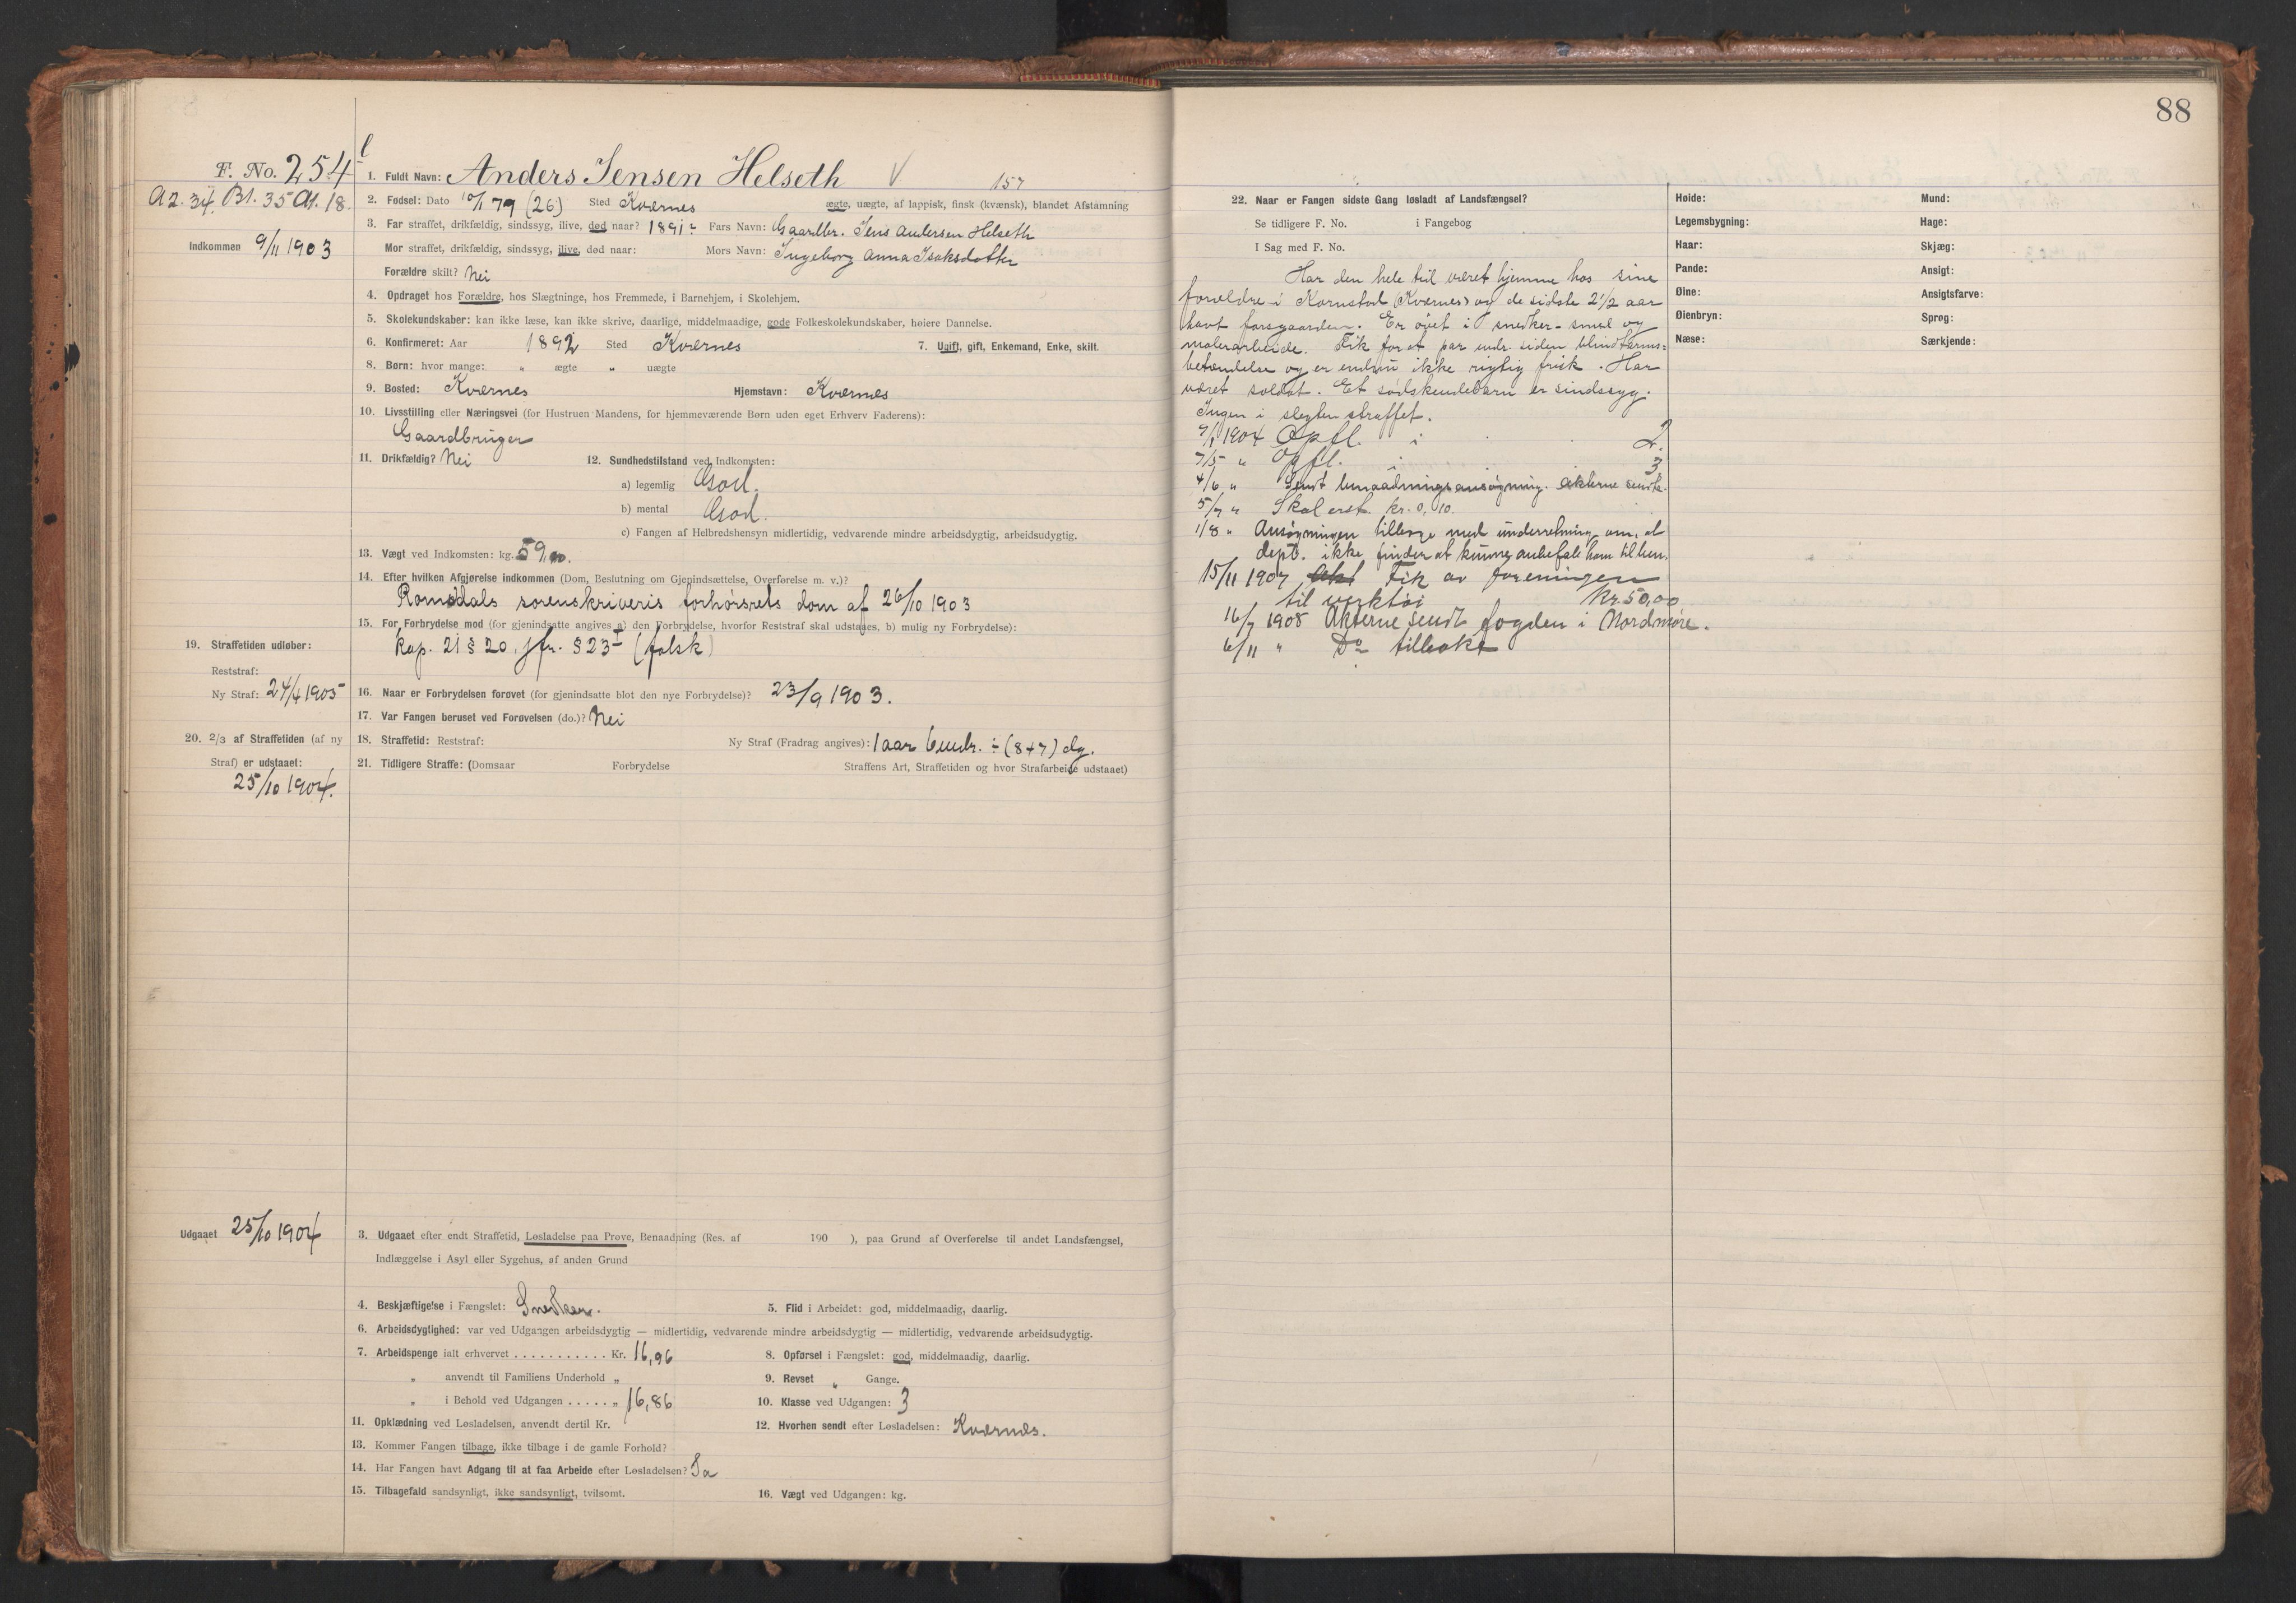 88
F. No. 254
A2. 34. B1. 35 A1. 18.
Indkommen 9/11 1903
1. Fuldt Navn: Anders Jensen Helseth
157
2. Fødsel: Dato 10/1 79 (26) Sted Kvernes ægte, uægte, af lappisk, finsk (kvænsk), blandet Afstamning
3. Far straffet, drikfældig, sindssyg, ilive, død naar? 1891? Fars Navn: Gaardbr. Jens Andersen Helseth
Mor straffet, drikfældig, sindssyg, ilive, død naar: Mors Navn: Ingeborg Anna Isaksdatter
Forældre skilt? Nei
4. Opdraget hos Forældre, hos Slægtninge, hos Fremmede, i Barnehjem, i Skolehjem.
5. Skolekundskaber: kan ikke læse, kan ikke skrive, daarlige, middelmaadige, gode Folkeskolekundskaber, høiere Dannelse.
6. Konfirmeret: Aar 1892 Sted Kvernes 7. Ugift, gift, Enkemand, Enke, skilt.
8. Børn: hvor mange: " ægte " uægte
9. Bosted: Kvernes Hjemstavn: Kvernes
10. Livsstilling eller Næringsvei (for Hustruen Mandens, for hjemmeværende Børn uden eget Erhverv Faderens):
Gaardbruger
11. Drikfældig? Nei 12. Sundhedstilstand ved Indkomsten:
a) legemlig God.
b) mental God.
c) Fangen af Helbredshensyn midlertidig, vedvarende mindre arbeidsdygtig, arbeidsudygtig.
13. Vægt ved Indkomsten: kg. 59,00.
14. Efter hvilken Afgjørelse indkommen (Dom, Beslutning om Gjenindsættelse, Overførelse m. v.)?
Romsdals sorenskriveris forhørsrets dom af 26/10 1903
15. For Forbrydelse mod (for gjenindsatte angives a) den Forbrydelse, hvorfor Reststraf skal udstaaes, b) mulig ny Forbrydelse):
Kap. 21 § 20, jfr. § 23 I (falsk)
19. Straffetiden udløber:
Reststraf:
Ny Straf: 24/4 1905
16. Naar er Forbrydelsen forøvet (for gjenindsatte blot den nye Forbrydelse)? 23/9 1903.
17. Var Fangen beruset ved Forøvelsen (do.)? Nei
20. 2/3 af Straffetiden (af ny
Straf) er udstaaet:
25/10 1904.
18. Straffetid: Reststraf: Ny Straf (Fradrag angives): 1 aar 6 mdr. ÷ (8+7) dg.
21. Tidligere Straffe: (Domsaar Forbrydelse Straffens Art, Straffetiden og hvor Strafarbeide udstaaet)
Udgaaet 25/10 1904
3. Udgaaet efter endt Straffetid, Løsladelse paa Prøve, Benaadning (Res. af 190 ), paa Grund af Overførelse til andet Landsfængsel,
Indlæggelse i Asyl eller Sygehus, af anden Grund
4. Beskjæftigelse i Fængslet: Snedker. 5. Flid i Arbeidet: god, middelmaadig, daarlig.
6. Arbeidsdygtighed: var ved Udgangen arbeidsdygtig — midlertidig, vedvarende mindre arbeidsdygtig — midlertidig, vedvarende arbeidsudygtig.
7. Arbeidspenge ialt erhvervet . . . . . . . . . . . Kr. 16,96 8. Opførsel i Fængslet: god, middelmaadig, daarlig.
" anvendt til Familiens Underhold " 9. Revset " Gange.
" i Behold ved Udgangen . . . . . " 16,86 10. Klasse ved Udgangen: 3
11. Opklædning ved Løsladelsen, anvendt dertil Kr. 12. Hvorhen sendt efter Løsladelsen: Kvernes.
13. Kommer Fangen tilbage, ikke tilbage i de gamle Forhold?
14. Har Fangen havt Adgang til at faa Arbeide efter Løsladelsen? Ja
15. Tilbagefald sandsynligt, ikke sandsynligt, tvilsomt. 16. Vægt ved Udgangen: kg.
22. Naar er Fangen sidste Gang løsladt af Landsfængsel?
Se tidligere F. No. i Fangebog
I Sag med F. No.
Har den hele tid været hjemme hos sine
forældre i Kornstad (Kvernes) og de sidste 2 1/2 aar
havt farsgaarden. Er øvet i snedker- smed og
malerarbeide. Fik for et par mdr. siden blindtarms=
betændelse og er endnu ikke rigtig frisk. Har
været soldat. Et sødskendebarn er sindssyg.
Ingen i slegten straffet.
9/1 1904 Opfl. i 2.
7/5 " Opfl. i 3
4/6 " Sendt benaadningsansøgning. Akterne sendte.
5/7 " Skal erst. kr. 0,10.
1/8 " Ansøgningen tilbage med underretning om, at
dept. ikke finder at kunne anbefale ham til ben.
15/11 1907 Fik av foreningen
til verktøi Kr. 50,00
16/7 1908 Akterne sendt fogden i Nordmøre.
6/11 " Do tilbake
Høide:
Legemsbygning:
Haar:
Pande:
Øine:
Øienbryn:
Næse:
Mund:
Hage:
Skjæg:
Ansigt:
Ansigtsfarve:
Sprog:
Særkjende: